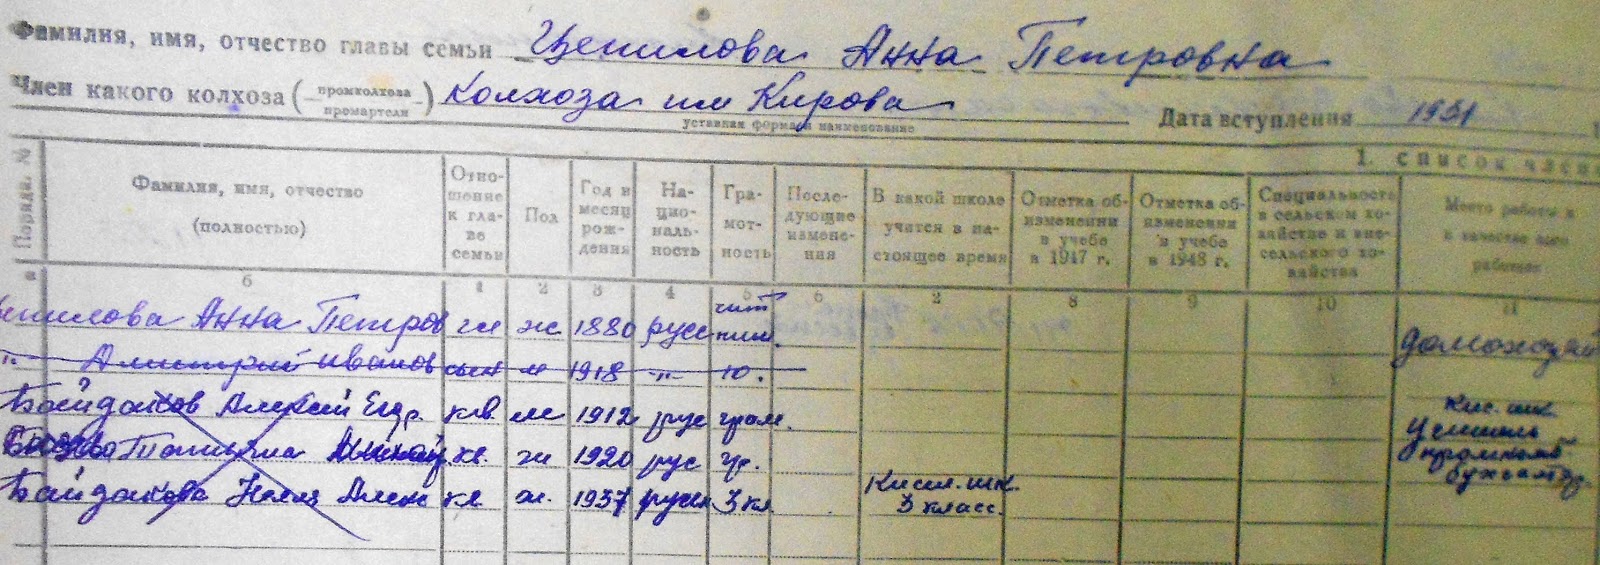 Фамилия, имя, отчество главы семьи Цепилова Анна Петровна
Член какого колхоза (промколхоза промартели) Колхоза им Кирова Дата вступления 1931
уставная форма и наименование
1. список члено
Порядк. № Фамилия, имя, отчество (полностью) Отношение к главе семьи Пол Год и месяц рождения Национальность Грамотность Последующие изменения В какой школе учится в настоящее время Отметка об изменении в учебе в 1947 г. Отметка об изменении в учебе в 1948 г. Специальность в сельском хозяйстве и вне сельского хозяйства Место работы и в качестве кого работает
а б 1 2 3 4 5 6 7 8 9 10 11
Анна Петров гл ж 1880 русс чит пис. домохозяй
" Дмитрий Иванов сын м 1918 -"- 10.
Байдаков Алексей Егор. кв. м 1912 рус грам.
Татьяна кв. ж 1920 рус гр.
Байдакова кв 1937 русск 3 кл Кисл. шк. 3 класс.